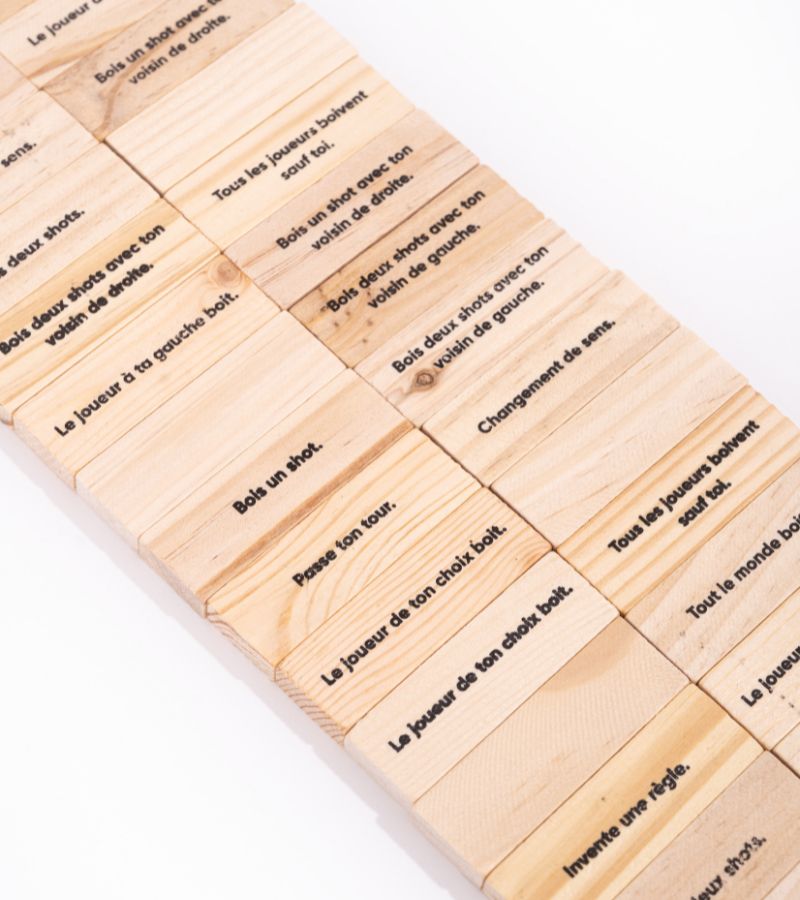 Le joueur à
Bois un shot avec
voisin de droite.
Tous les joueurs boivent
sauf toi.
Bois un shot avec ton
voisin de droite.
Bois deux shots avec ton
voisin de gauche.
Bois deux shots avec ton
voisin de gauche.
Changement de sens.
Tous les joueurs boivent
sauf toi.
Tout le monde boit
Le joueur
sens.
deux shots.
Bois deux shots avec ton
voisin de droite.
Le joueur à ta gauche boit.
Bois un shot.
Passe ton tour.
Le joueur de ton choix boit.
Le joueur de ton choix boit.
Invente une règle.
deux shots.